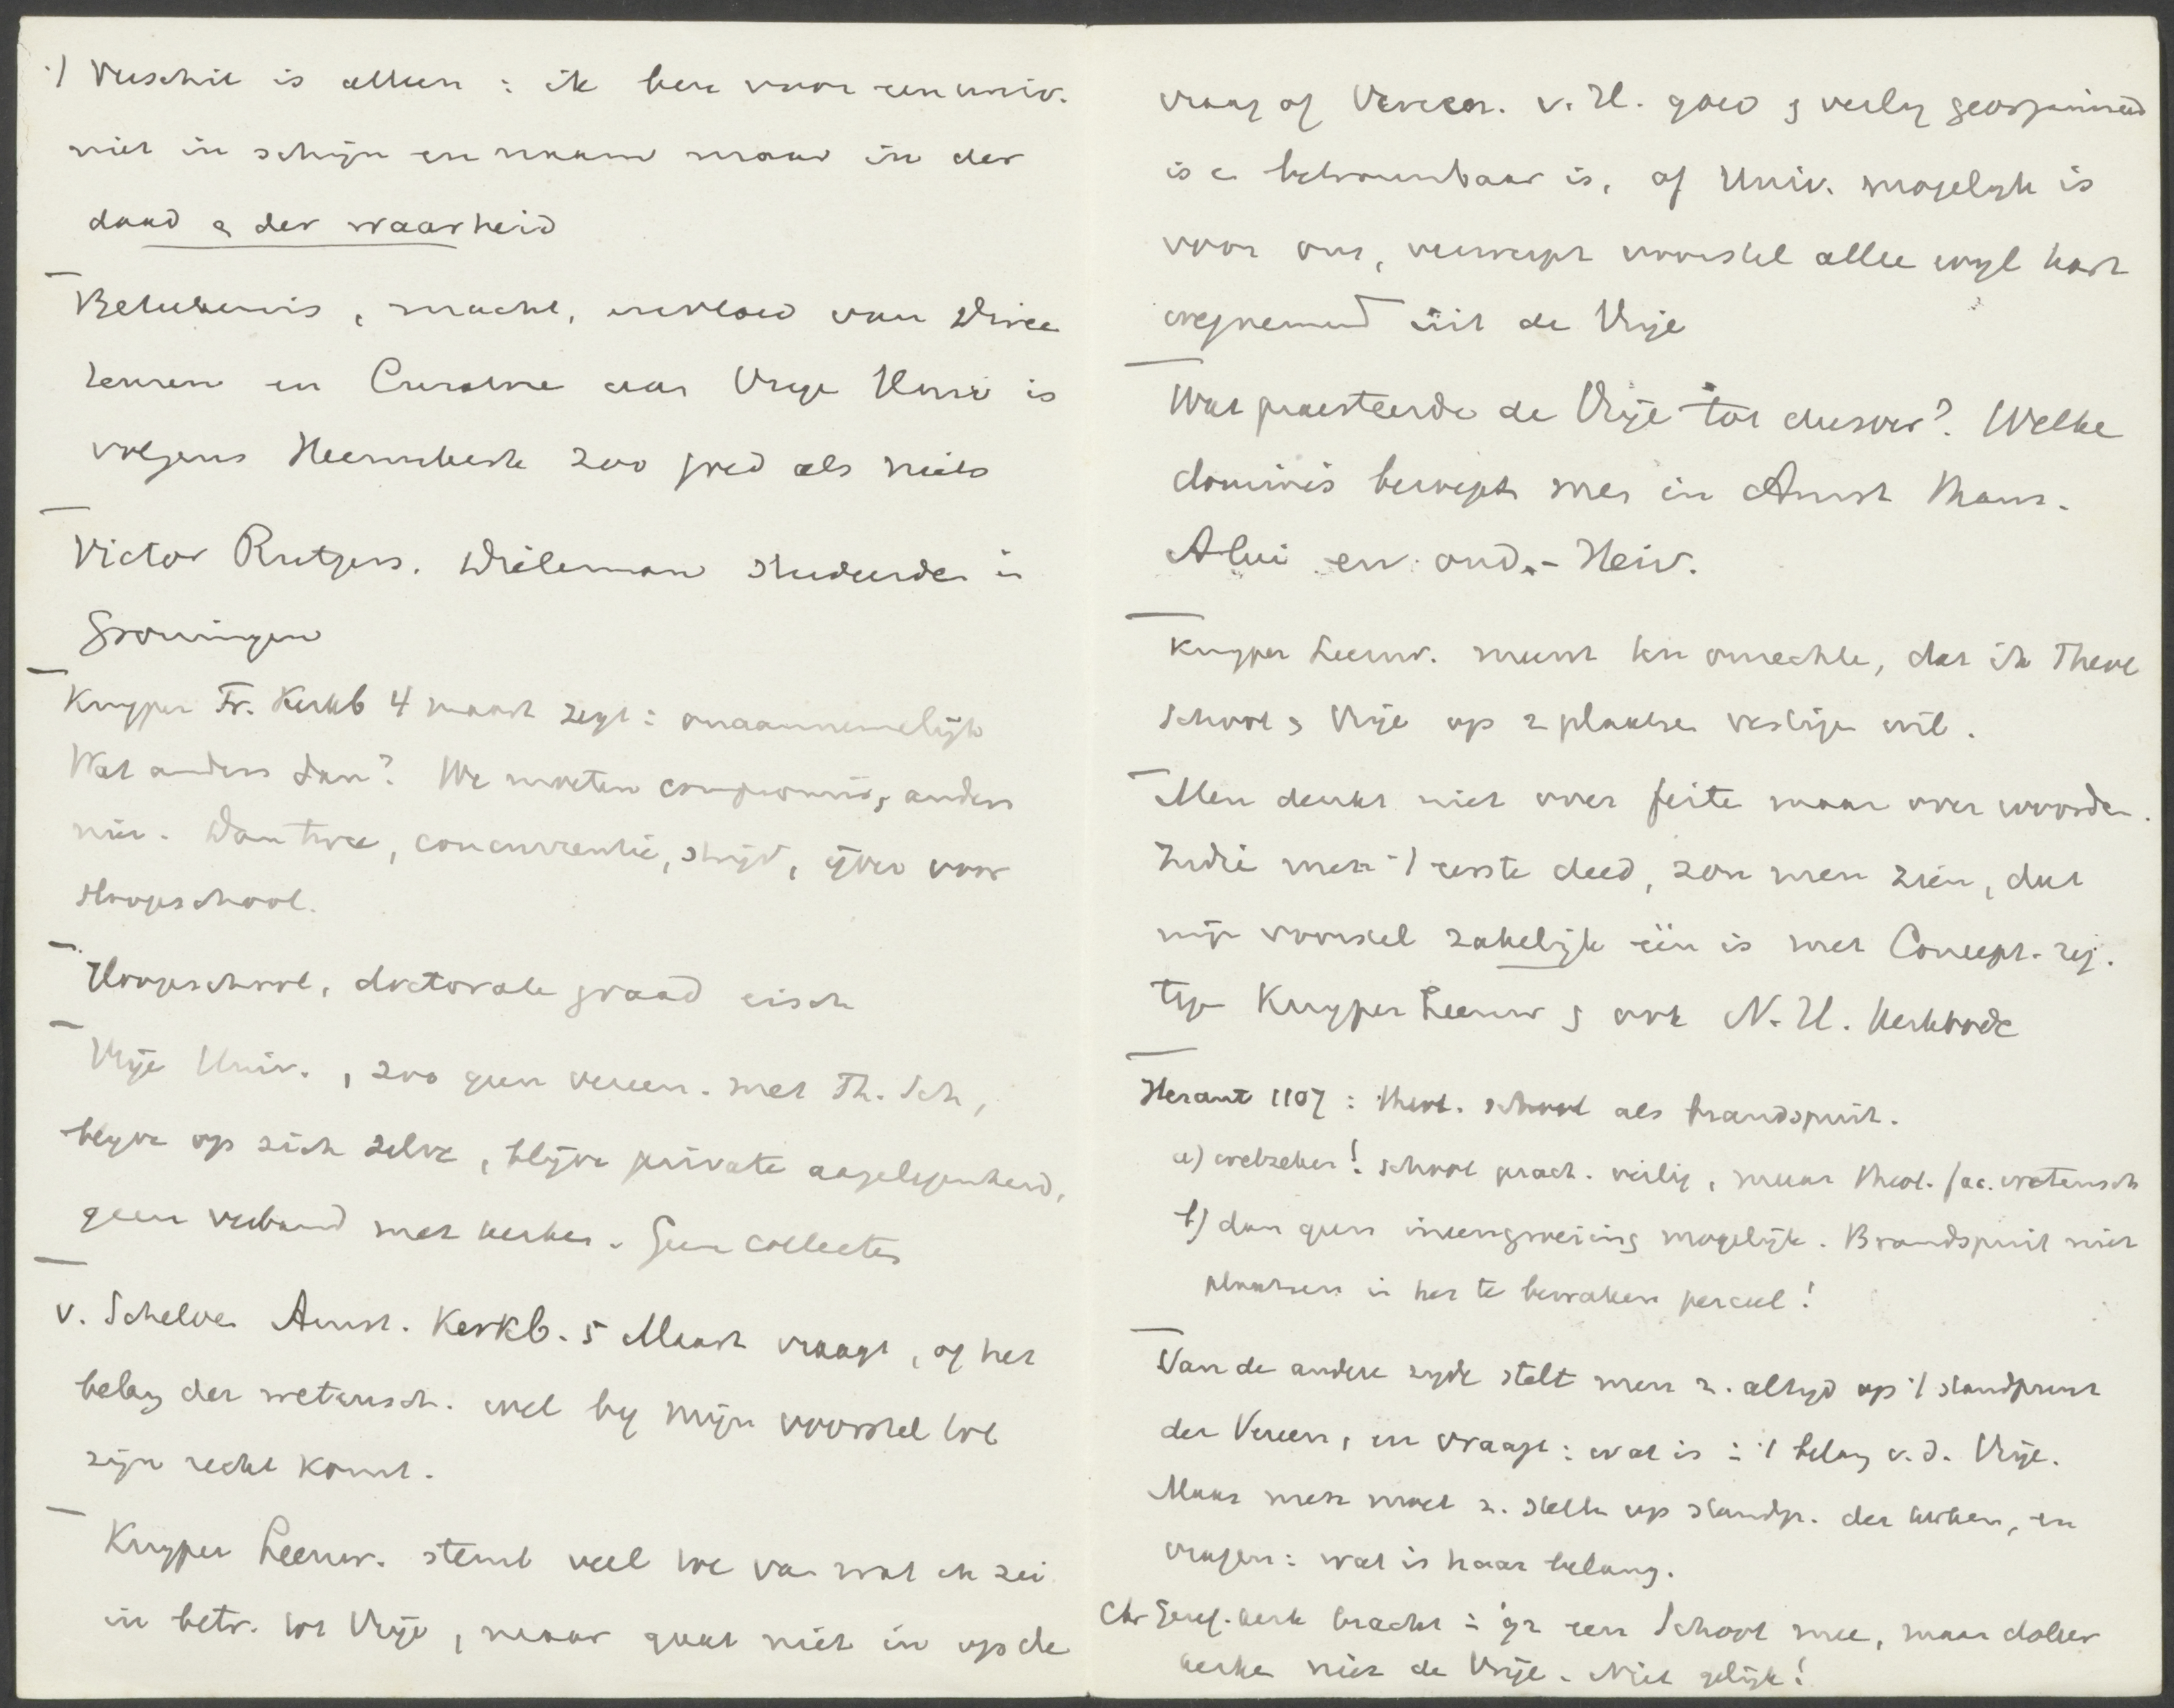 't Verschil is alleen : ik ben voor een univ.
niet in schijn en naam maar in der
daad & der waarheid
Beteekenis, macht, invloed van Direc
teuren en Curatore aan Vrije Univ is
volgens Heemskerk zoo goed als niets
Victor Rutgers. Wieleman studeerde in
Groningen
Kuyper Fr. Kerkb 4 maart zegt : onaannemelijk
Wat anders dan? We moeten compromis, anders
niet. Dan twee, concurrentie, strijd, ijver voor
Hoogeschool.
Hoogeschool, doctorale graad eisch
Vrije Univ., zoo geen vereen. met Th. Sch,
blijve op zich zelve, blijve private aagelegenheid,
geen verband met kerken. Geen collectes
v. Schelve Amst. Kerkb. 5 Maart vraagt, of het
belang der wetensch. wel by mijn voorstel tot
zijn recht komt.
Kuyper Leeuw. stemt veel toe van wat ik zei
in betr. tot Vrije, maar gaat niet in op de
vraag of Vereen. v. H. goed & veilig georganiseerd
is en betrouwbaar is, of Univ. mogelijk is
voor ons, verwerpt voorstel alleen wyl hart
wegnemend uit de Vrije
Wat praesteerde de Vrije tot dusver? Welke
dominés beroept men in Amst thans.
Alui en oud.-Heiv.
Kuyper Leeuw. meent ten onrechte, dat ik Theol
School & Vrije op 2 plaatsen vestige wil.
Men denkt niet over feite maar over woorden.
Indie men 't eerste deed, zou men zien, dat
mijn voorstel zakelijk één is met Concept-reg.
Kuyper Leeuw & ook N.H. Kerkbode
Heraut 1107 : theol. school als brandspuit.
a) welzeker! school pract. veilig, maar theol. fac. wetensch
b) dan geen ineengroeiing mogelijk. Brandspuit niet
plaatsen in het te bewaken perceel!
Van de andere zyde stelt men z. altyd op 't standpunt
der Vereen, en vraagt : wat is in 't belang v.d. Vrije.
Maar men moet z. stelle op standp. der kerken, en
vragen : wat is haar belang.
Chr Geref. kerk bracht in '92 een School mee, maar doleer
kerke niet de Vrije. Niet gelijk!